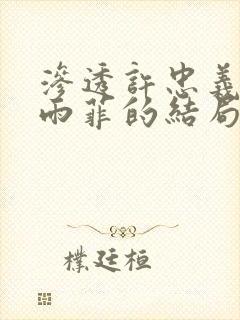 滲透許忠義
雨菲的結局
樸廷桓